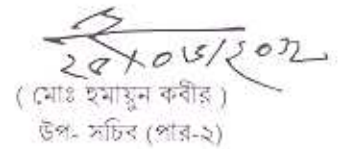 ২৫/০৬/২০১২
( মোঃ হুমায়ুন কবীর )
উপ- সচিব (পার-২)